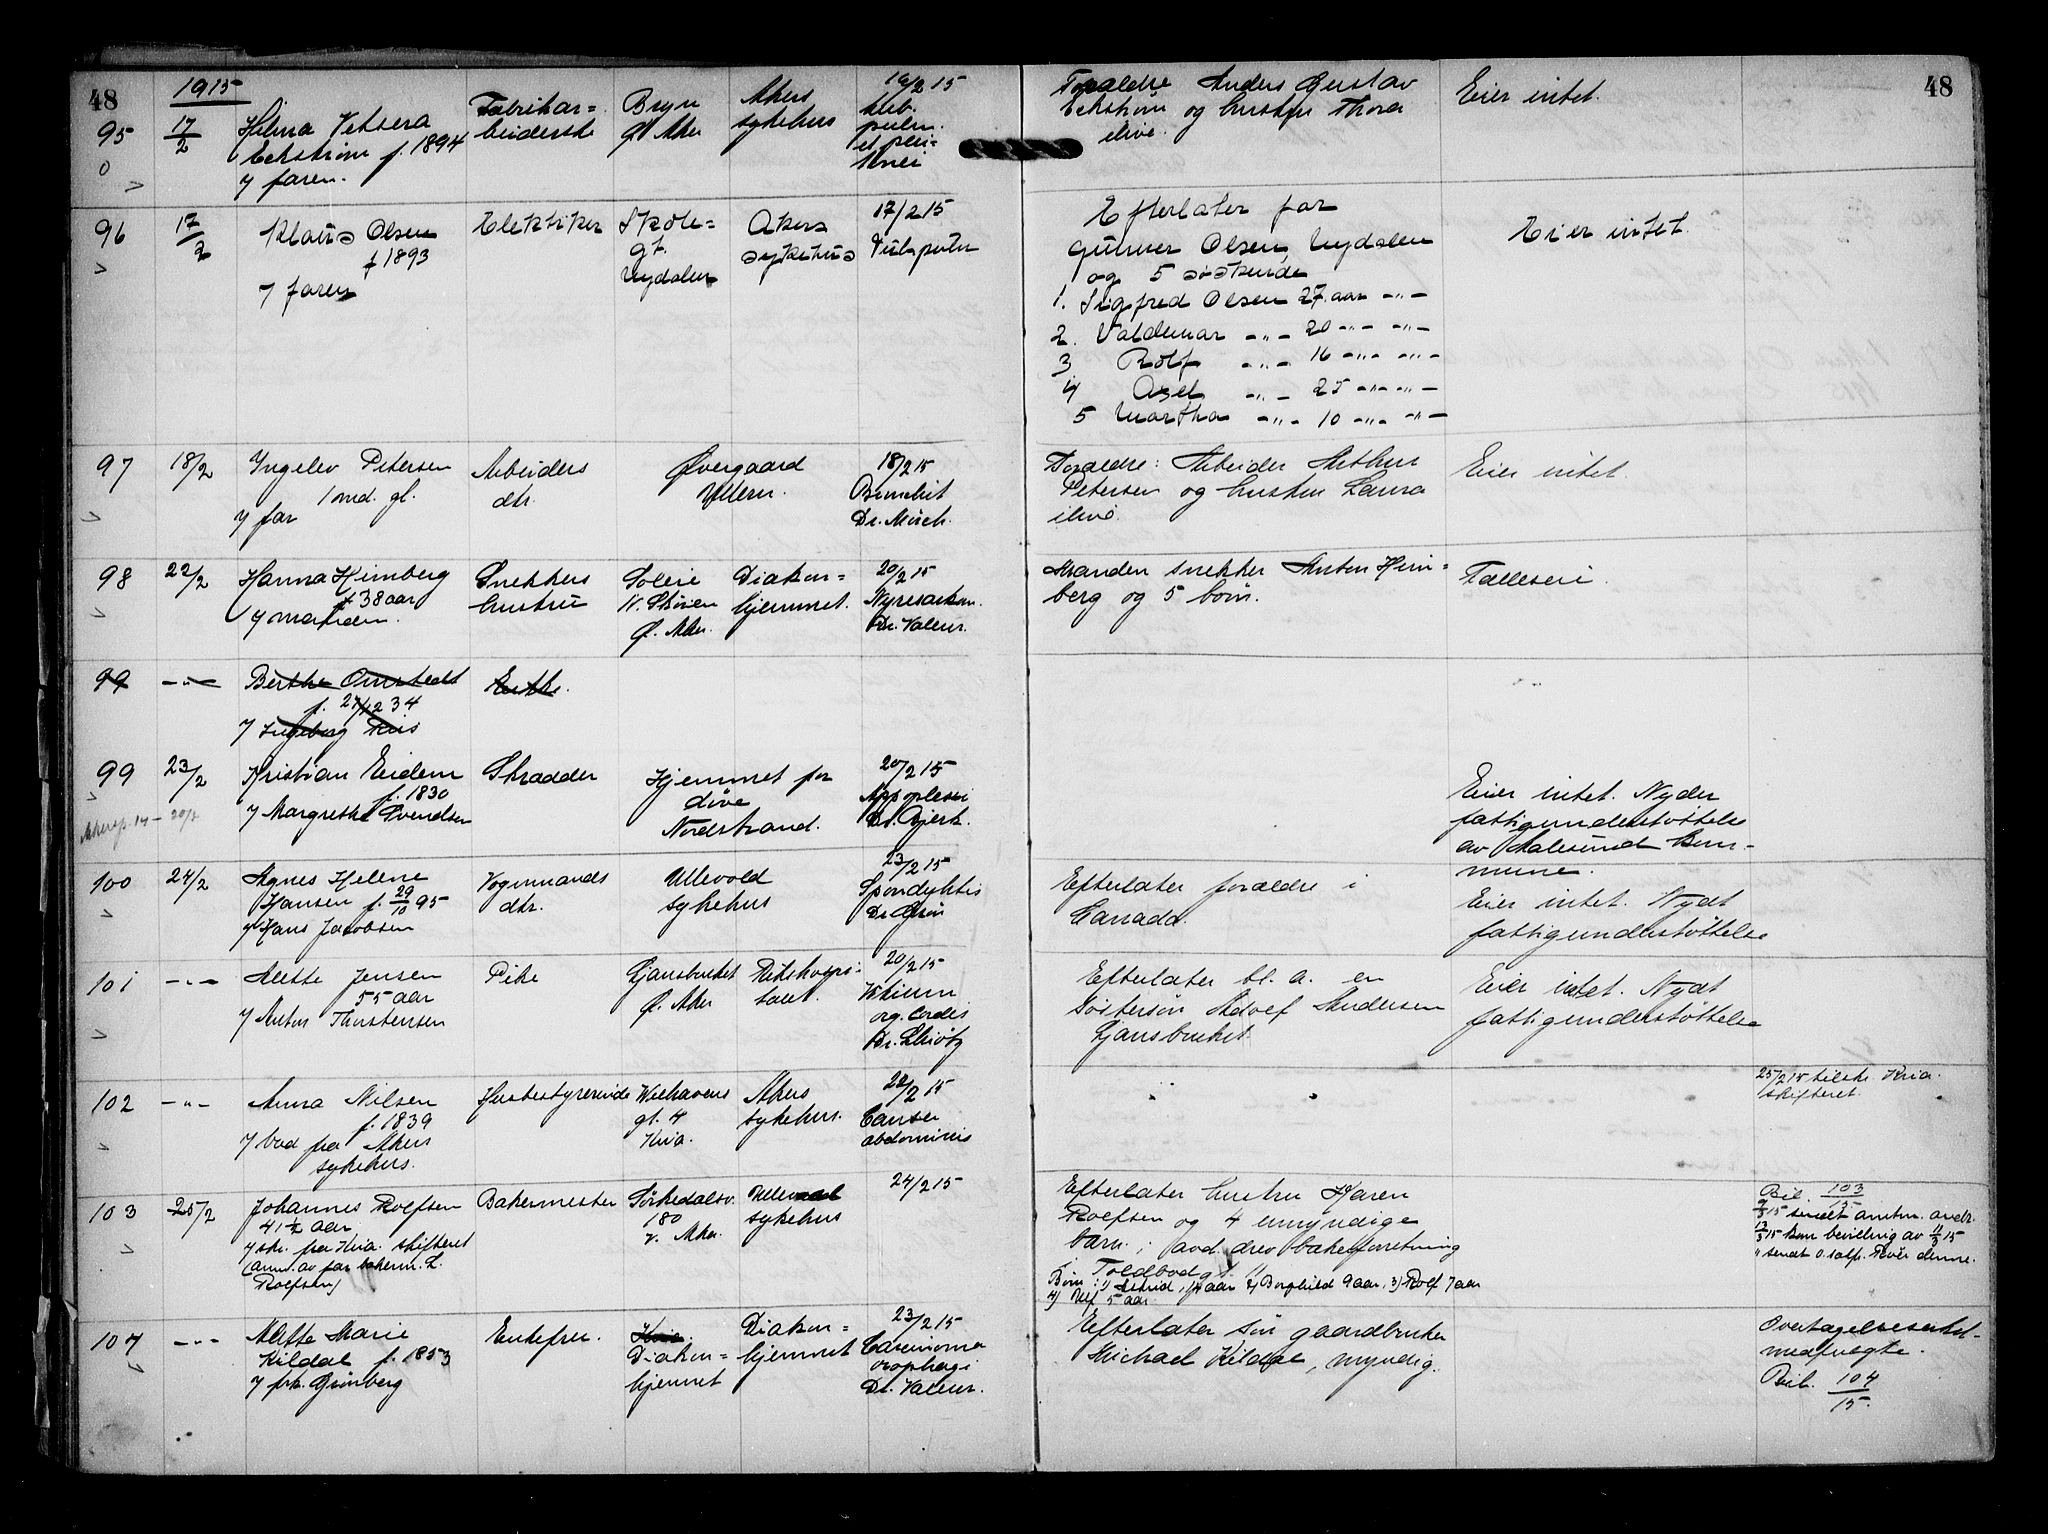 48
1915
48
95
17/2
Hilma
Eckstrøm f. 1894
7 faren.
Fabrikar=
beiderske
Bryn
Ø. Aker
Akers
sykehus
16/2 15
tub.
pulm.
Forældre Anders Gustav
Eckstrøm og hustru Thora
Eier intet.
96
17/2
Klaus Olsen
f 1893
7 faren
Elektriker
Skole=
gt.
Nydalen
Akers
sykehus
17/2 15
Tub. pulm
Efterlater far
Gunner Olsen, Nydalen
og 5 søskende
1. Sigfred Olsen 27 aar -"-
2. Valdemar -"- 20 -"- -"-
3 Rolf -"- 16 -"- -"-
4 Axel -"- 25 -"- -"-
5 Martha -"- 10 -"- -"-
Eier intet.
97
18/2
Ingelev Petersen
1 md. gl.
7 far
Arbeiders
dtr.
Øvergaard
Ullern.
18/2 15
Bronchit
Dr. Münch.
Forældre: Arbeider Arthur
Petersen og hustru Laura
Eier intet.
98
22/2
Hanna Heimberg
38 aar
7 manden.
Snekkers
hustru
Soleie
N. Skøien
Ø. Aker.
Diakon=
hjemmet.
20/2 15
Nyresarkom.
Dr. Valeur.
Manden snekker Anton Heim=
berg og 5 børn.
Fælleseie.
99
-"-
Berthe Omstedt
f. 27/12 34
7 Ingeborg Riis
Enke.
99
23/2
Kristian Eidem
f. 1830
7 Margrethe Svendsen
Skrædder
Hjemmet for
døve
Nordstrand.
20/2 15
Appoplexi
Dr. Bjerk.
Eier intet. Nyder
fattigunderstøttelse
av Aalesund kom-
mune.
100
24/2
Agnes Helene
Hansen f. 29/10 95
7 Hans Jacobsen
Vognmands
dtr.
Ullevold
sykehus
23/2 15
Spondylitis
Dr. Grøn
Efterlater forældre i
Canada.
Eier intet. Nydt
fattigunderstøttelse
101
-"-
Mette Jensen
55 aar
7 Anton Thorstensen
Pike
Ljansbruket
Ø. Aker
Rikshospi=
talet.
20/2 15
Vitium
org. cordis
Dr. Schiøtz
Efterlater bl. a. en
søstersøn Adolf Andersen
Ljansbruket.
Eier intet. Nydt
fattigunderstøttelse
102
-"-
Anna Nilsen
f. 1839
7 bud fra Akers
sykehus.
Husbestyrerinde
Welhavens
gt. 4
Kria.
Akers
sykehus.
22/2 15
Cancer
abdominis
25/2 15 tilskr. Kria.
skifteret.
103
25/2
Johannes Rolfsen
41 1/2 aar
7 skr. fra Kria. skifteret
(anm. av far bakerm. L.
Rolfsen)
Bakermester
Sørkedalsv.
180
V. Aker.
Ullevaal
sykehus
24/2 15
Efterlater hustru Karen
Rolfsen og 4 umyndige
barn; avd. drev bakerforretning
i Toldbodgt. 11
Børn: 1) Astrid, 14 aar 2) Borghild 9 aar, 3) Rolf 7 aar
4) Ulf 5 aar
Bil. 103/15
9/3 15 sendt amtm. andr.
13/3 15 kom bevilling av 11/3 15
104
-"-
Mette Marie
Kildal f. 1853
7 frk. Grønberg
Enkefru.
Kria.
Diakon=
hjemmet
Diakon=
hjemmet
23/2 15
Carcinoma
oesophagi
Dr. Valeur.
Efterlater søn gaardbruker
Michael Kildal, myndig.
Overtagelseserkl.
medfulgte.
Bil. 104/15.